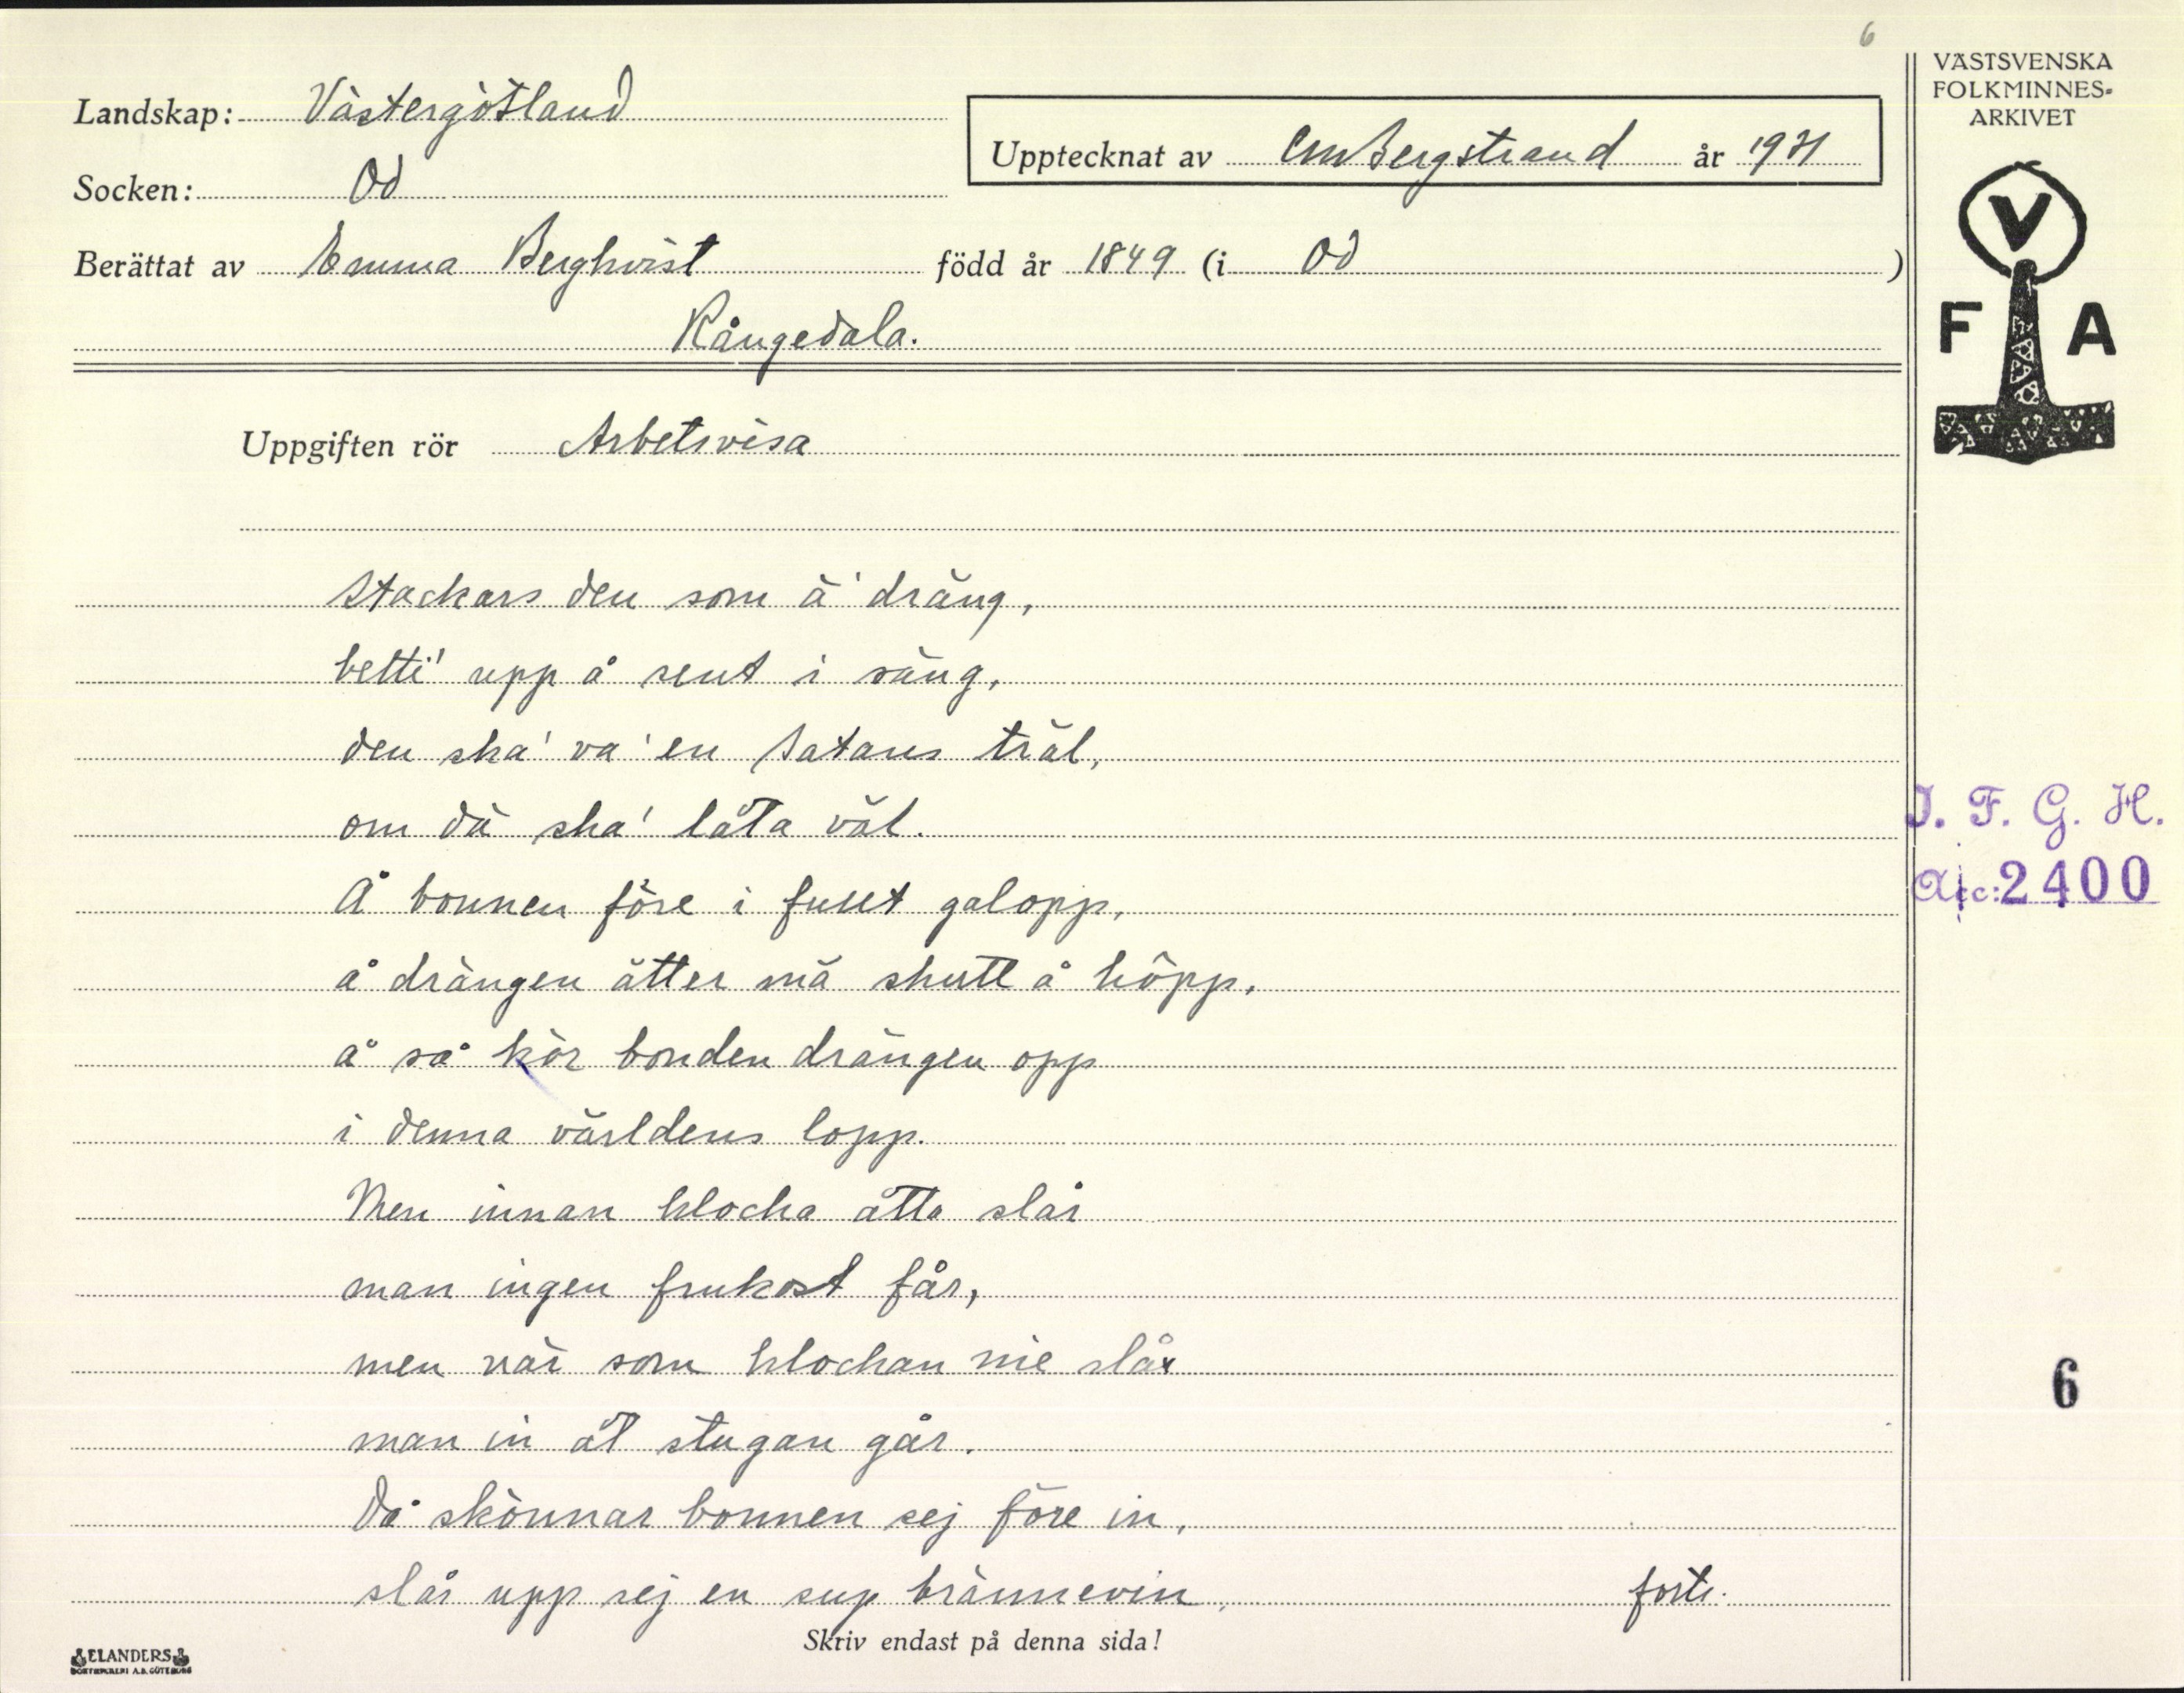 6
VÄSTSVENSKA
FOLKMINNES-
ARKIVET
Landskap: Västergötland
Upptecknat av CMBergstrand år 1931
Socken: Od
Berättat av Emma Berghvist född år 1849 (i Od)
Rångedala.
V
F A
Uppgiften rör Arbetsvisa
Stackars den som ä' dräng,
betti' upp å sent i säng,
den ska' va' en Satans träl,
om dä ska' låta väl.
Å bonnen före i fullt galopp,
å drängen ätter mä skutt å höpp,
å så kör bonden drängen opp
i denna världens lopp.
Men innan klocka åtta slår
man ingen frukost får,
men när som klockan nie slår
man in åt stugan går.
Då skönnar bonnen sej före in,
slår upp sej en sup brännevin,
forts.
I. F. G. H.
Acc: 2400
6
Skriv endast på denna sida!
ELANDERS
BOKTRYCKERI A.B. GÖTEBORG